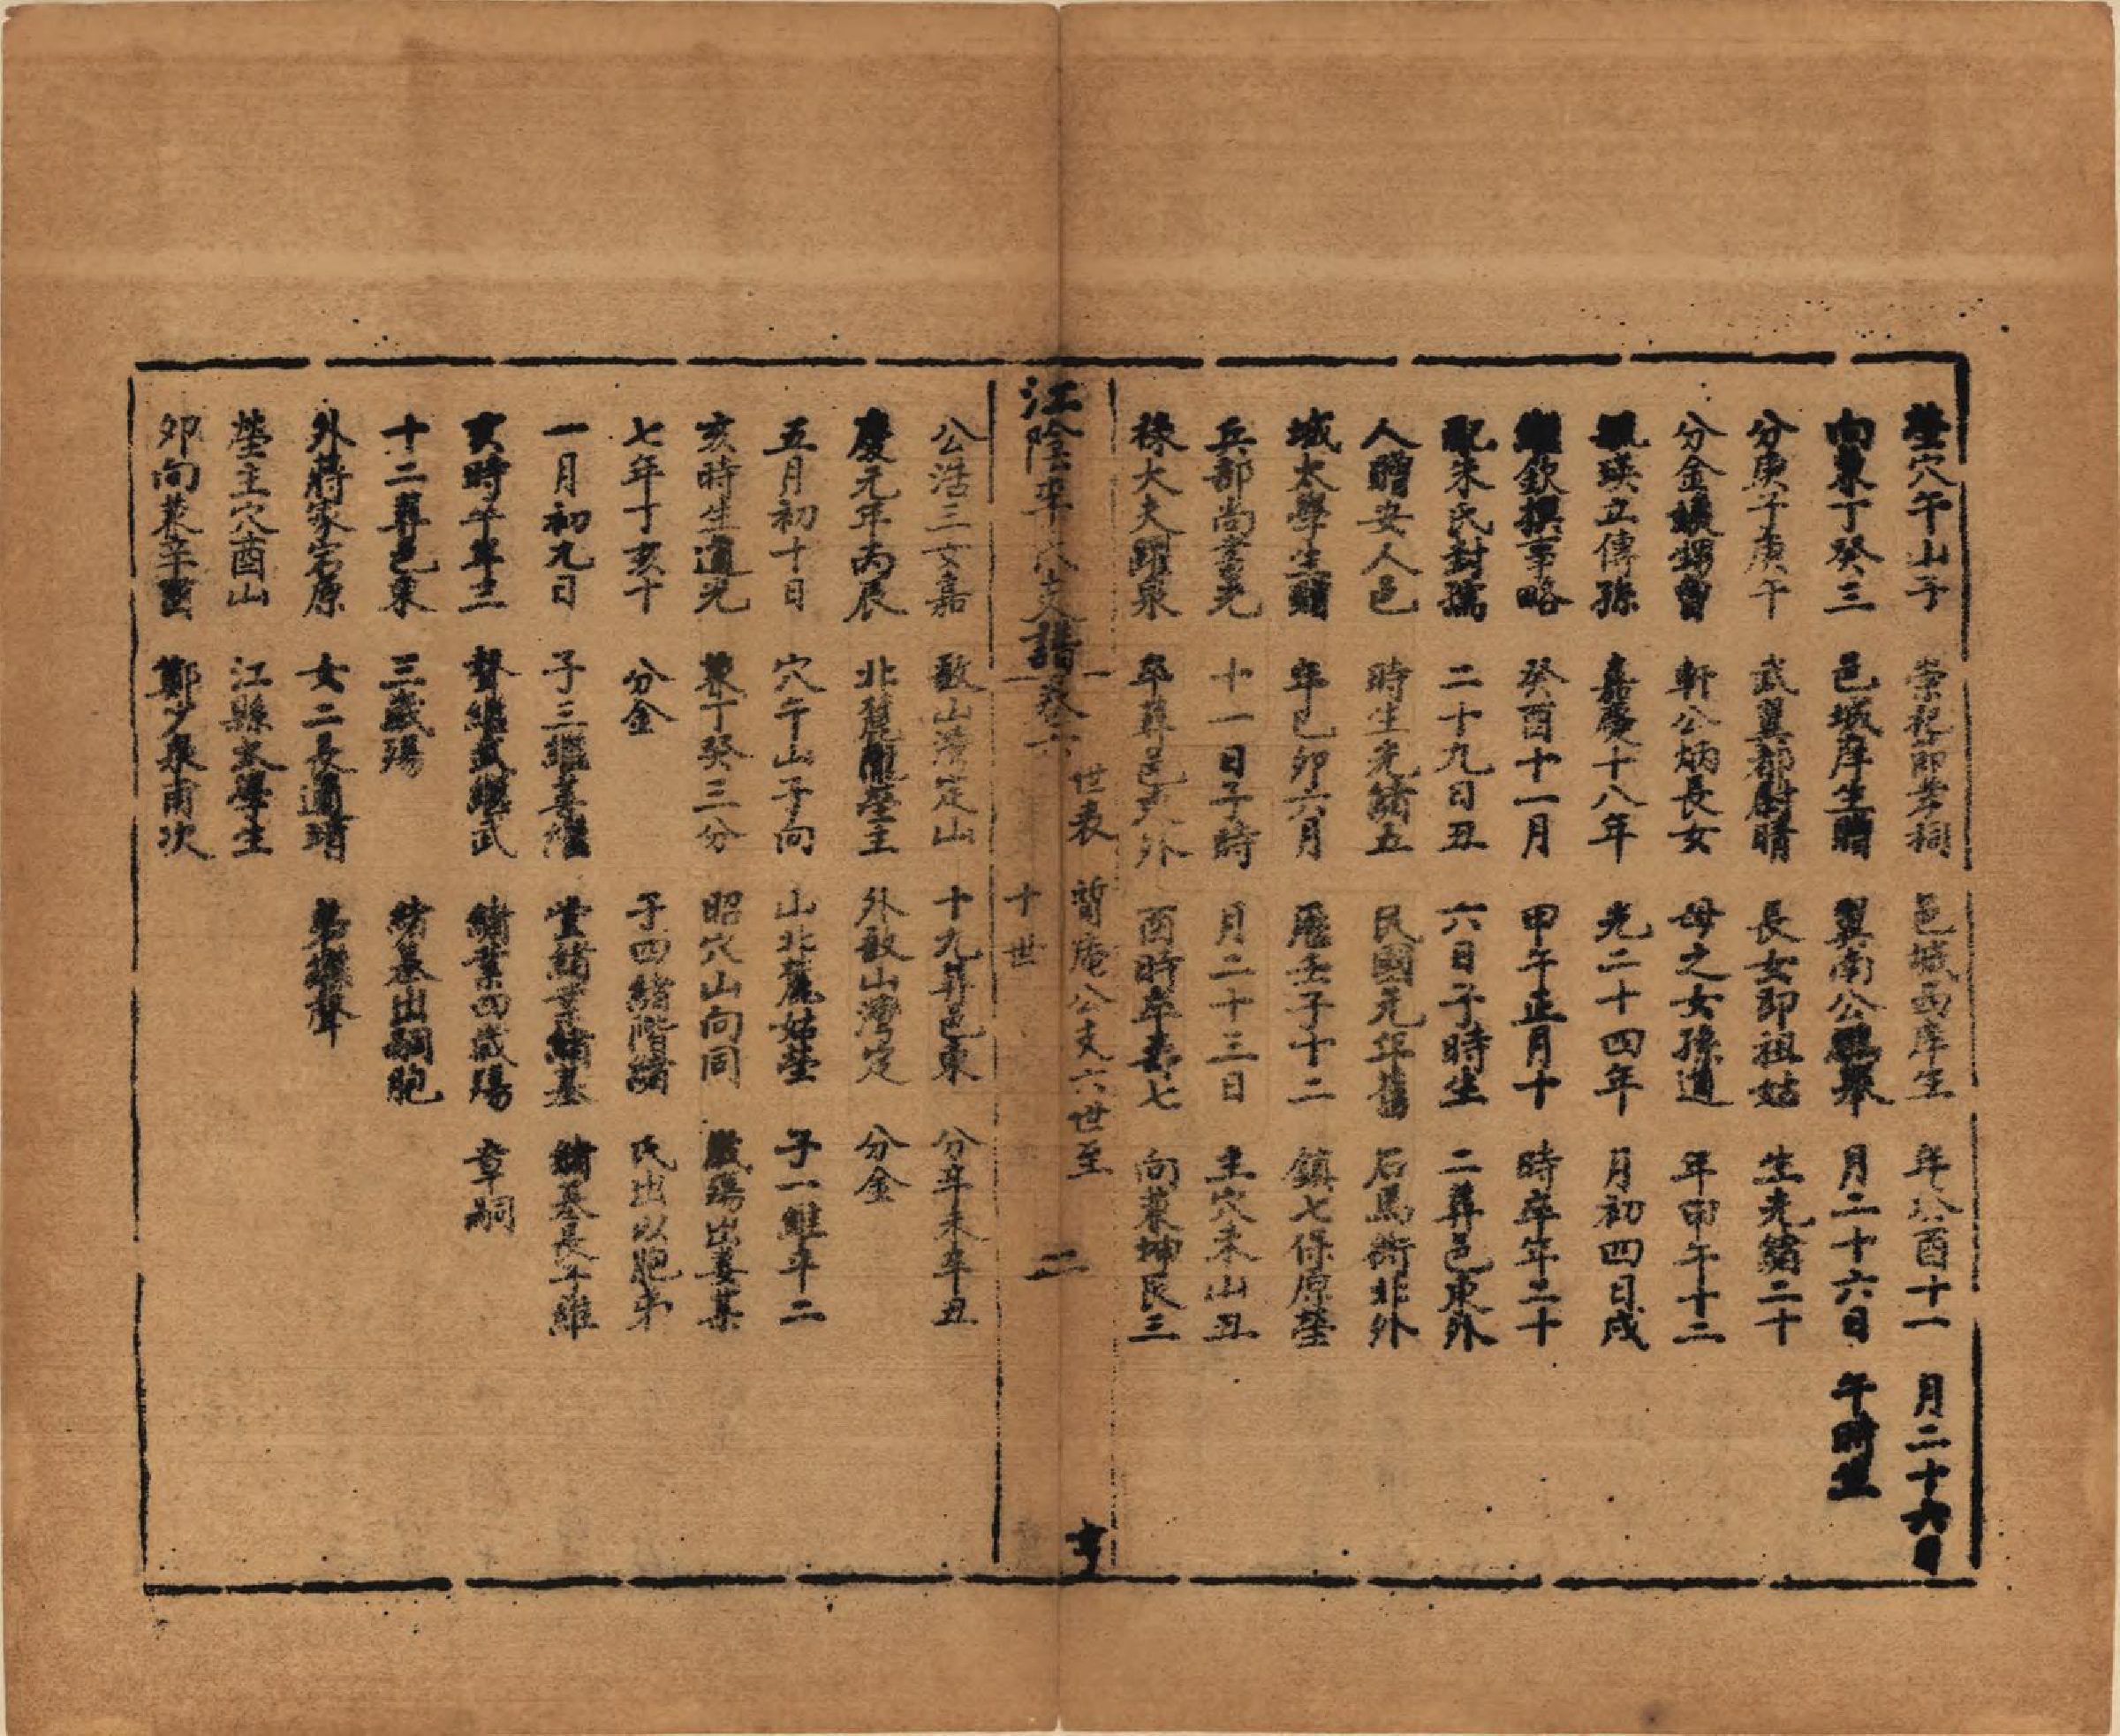 塋穴午山子
向兼丁癸三
分庚子庚午
分金嫉甥曾
瑛立傳孫
欽撰事略
配朱氏封孺
人贈安人邑
城太學生贈
兵部尚書光
祿大夫躍泉
崇祀節孝祠
邑城庠生贈
武翼都尉晴
軒公炳長女
嘉慶十八年
癸酉十一月
二十九日丑
時生光緒五
年己卯六月
十一日子時
卒葬邑東外
邑城西庠生
翼南公鵬舉
長女即祖姑
母之女孫道
光二十四年
甲午正月十
六日子時生
民國元年舊
曆壬子十二
月二十三日
酉時卒壽七
年癸酉十一
月二十六日
生光緒二十
年甲午十二
月初四日戌
時卒年二十
二葬邑東外
石馬街北外
鎮七保原塋
主穴未山丑
向兼坤艮三
月二十六日
午時生
江陰 支譜卷六
世表 暫庵公支六世至
十世
二
公浩三女嘉
慶元年丙辰
五月初十日
亥時生道光
七年丁亥十
一月初九日
亥時卒年三
十二葬邑東
外蔣家宕原
塋主穴酉山
卯向兼辛酉
敔山灣定山
北麓 塋主
穴午山子向
兼丁癸三分
分金
子三繼善繼
聲繼武繼武
三歲殤
女二長適靖
江縣太學生
鄭少泉甫次
十九葬邑東
外敔山灣定
山北麓姑塋
昭穴山向同
子四緒階緒
堂緒業緒基
緒業四歲殤
緒基出嗣胞
弟繼聲
分辛未辛丑
分金
子一維平二
歲殤出姜某
氏出以胞弟
緒基長子維
章嗣